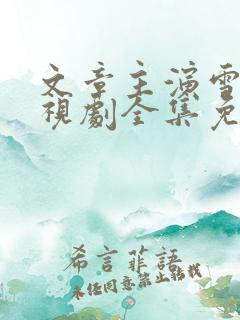 文章主演雪
視劇全集免
希言菲語
未经同意禁止转载